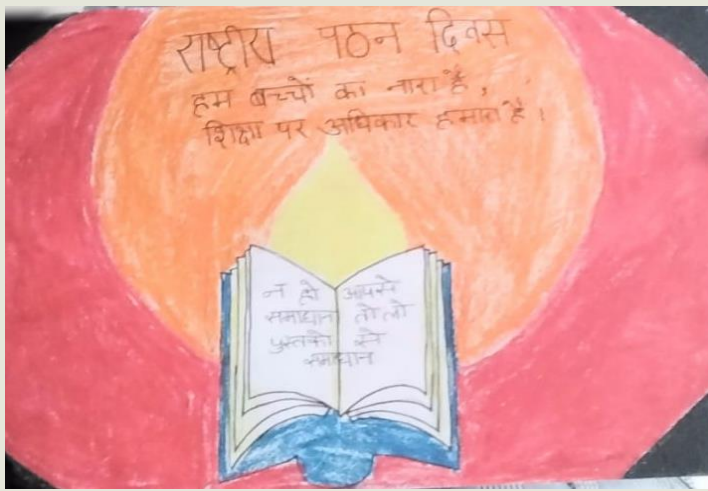 राष्ट्रीय पठन दिवस
हम बच्चों का नारा है,
शिक्षा पर अधिकार हमारा है।
न हो आपसे
समाधान तो लो
पुस्तको से
समाधान